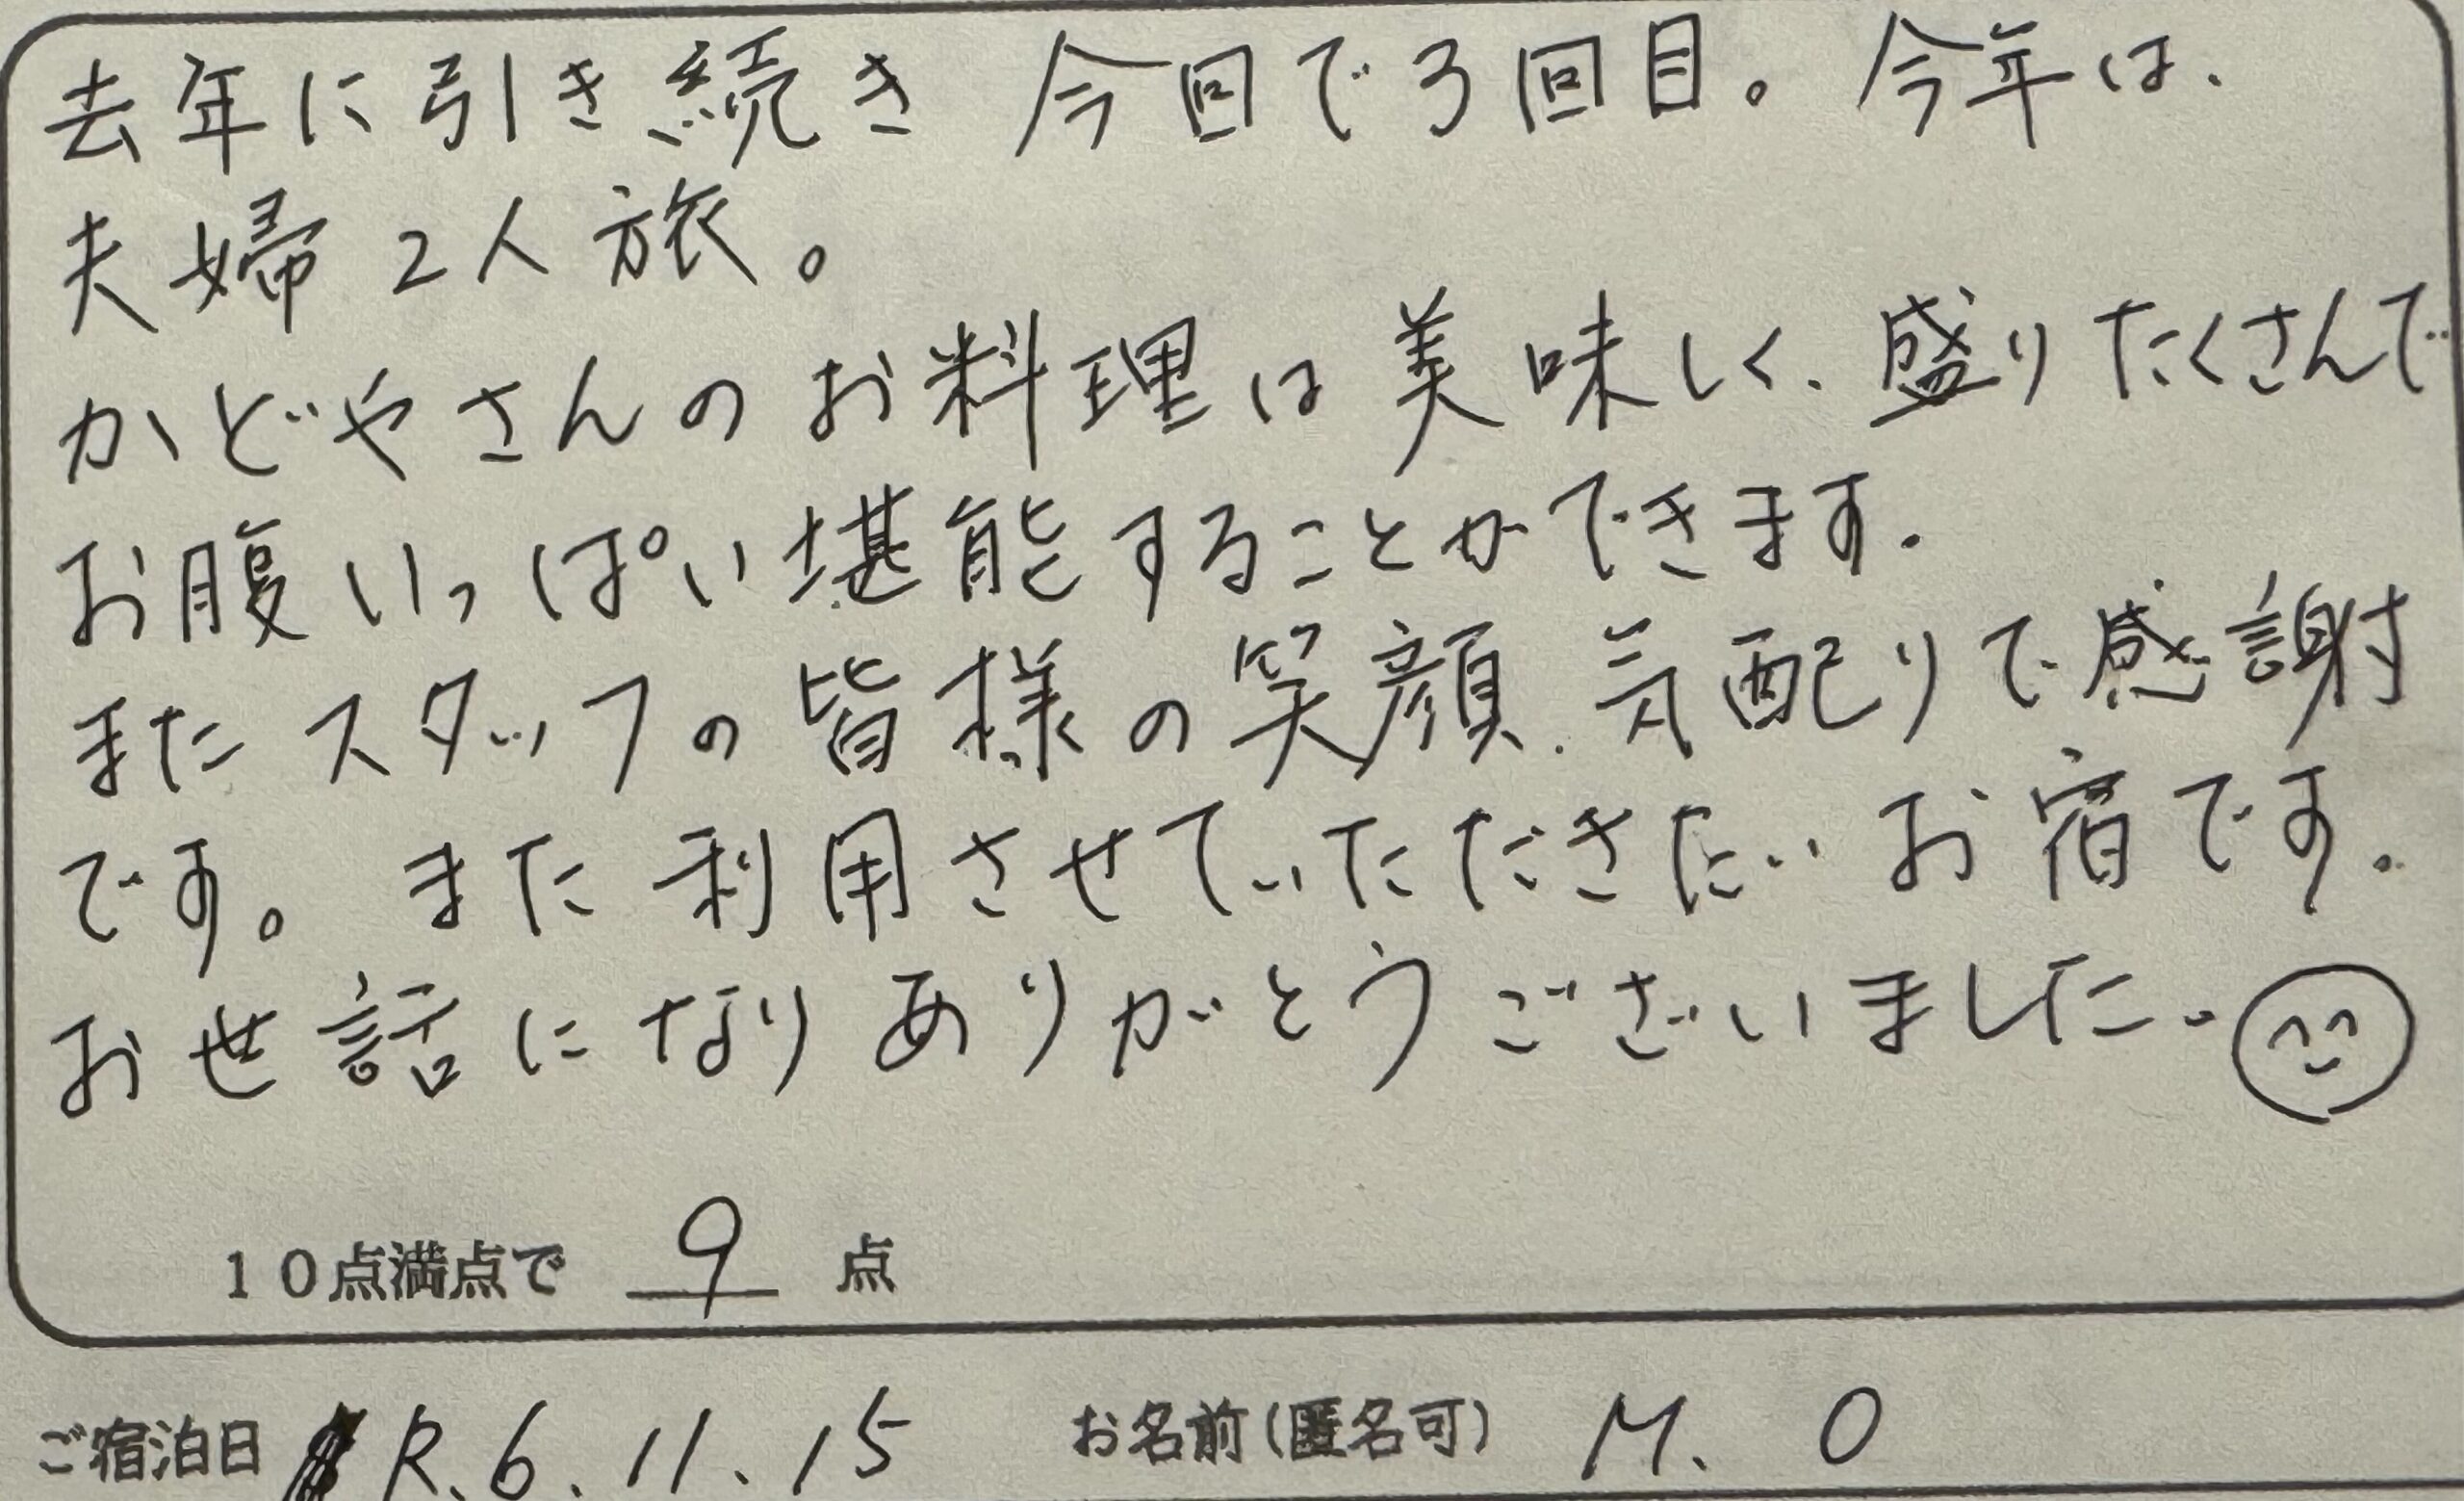 去年に引き続き 今回で3回目。今年は、
夫婦2人旅。
かどやさんのお料理は美味しく、盛りたくさんで
お腹いっぱい堪能することができます。
またスタッフの皆様の笑顔、気配りで感謝
です。 また利用させていただきたいお宿です。
お世話になりありがとうございました。
10点満点で 9 点
ご宿泊日 R.6.11.15 お名前(匿名可) M. O